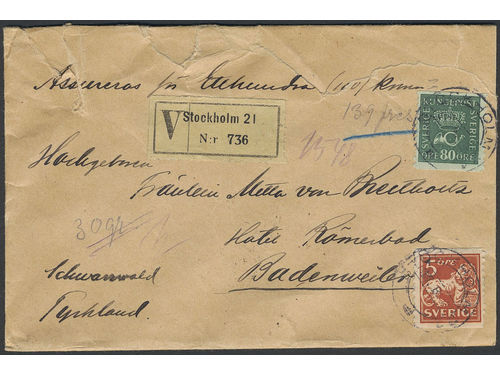 Assureras för Etthundra (100) Kronor
V Stockholm 21
N:r 736
Högvälborna
Fräulein Metta von
Hotel Römerbad
Badenweiler
Schwarzwald
Tyskland.
30gr
1348
139
SVERIGE KUNGL POST SVERIGE
ÖRE 80 ÖRE
HOLM
5 ÖRE
SVERIGE